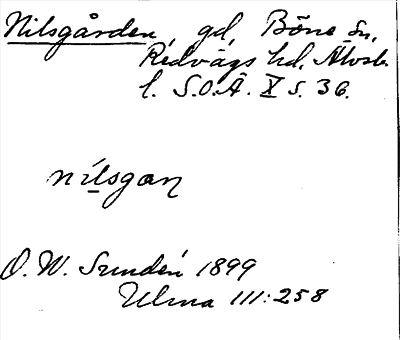 Nilsgården, gd, Böne sn,
Redvägs hd. Älvsb.
l. S.O.Ä. X s. 36.
nilsgan
O. W. Sundén 1899
Ulma 111:258